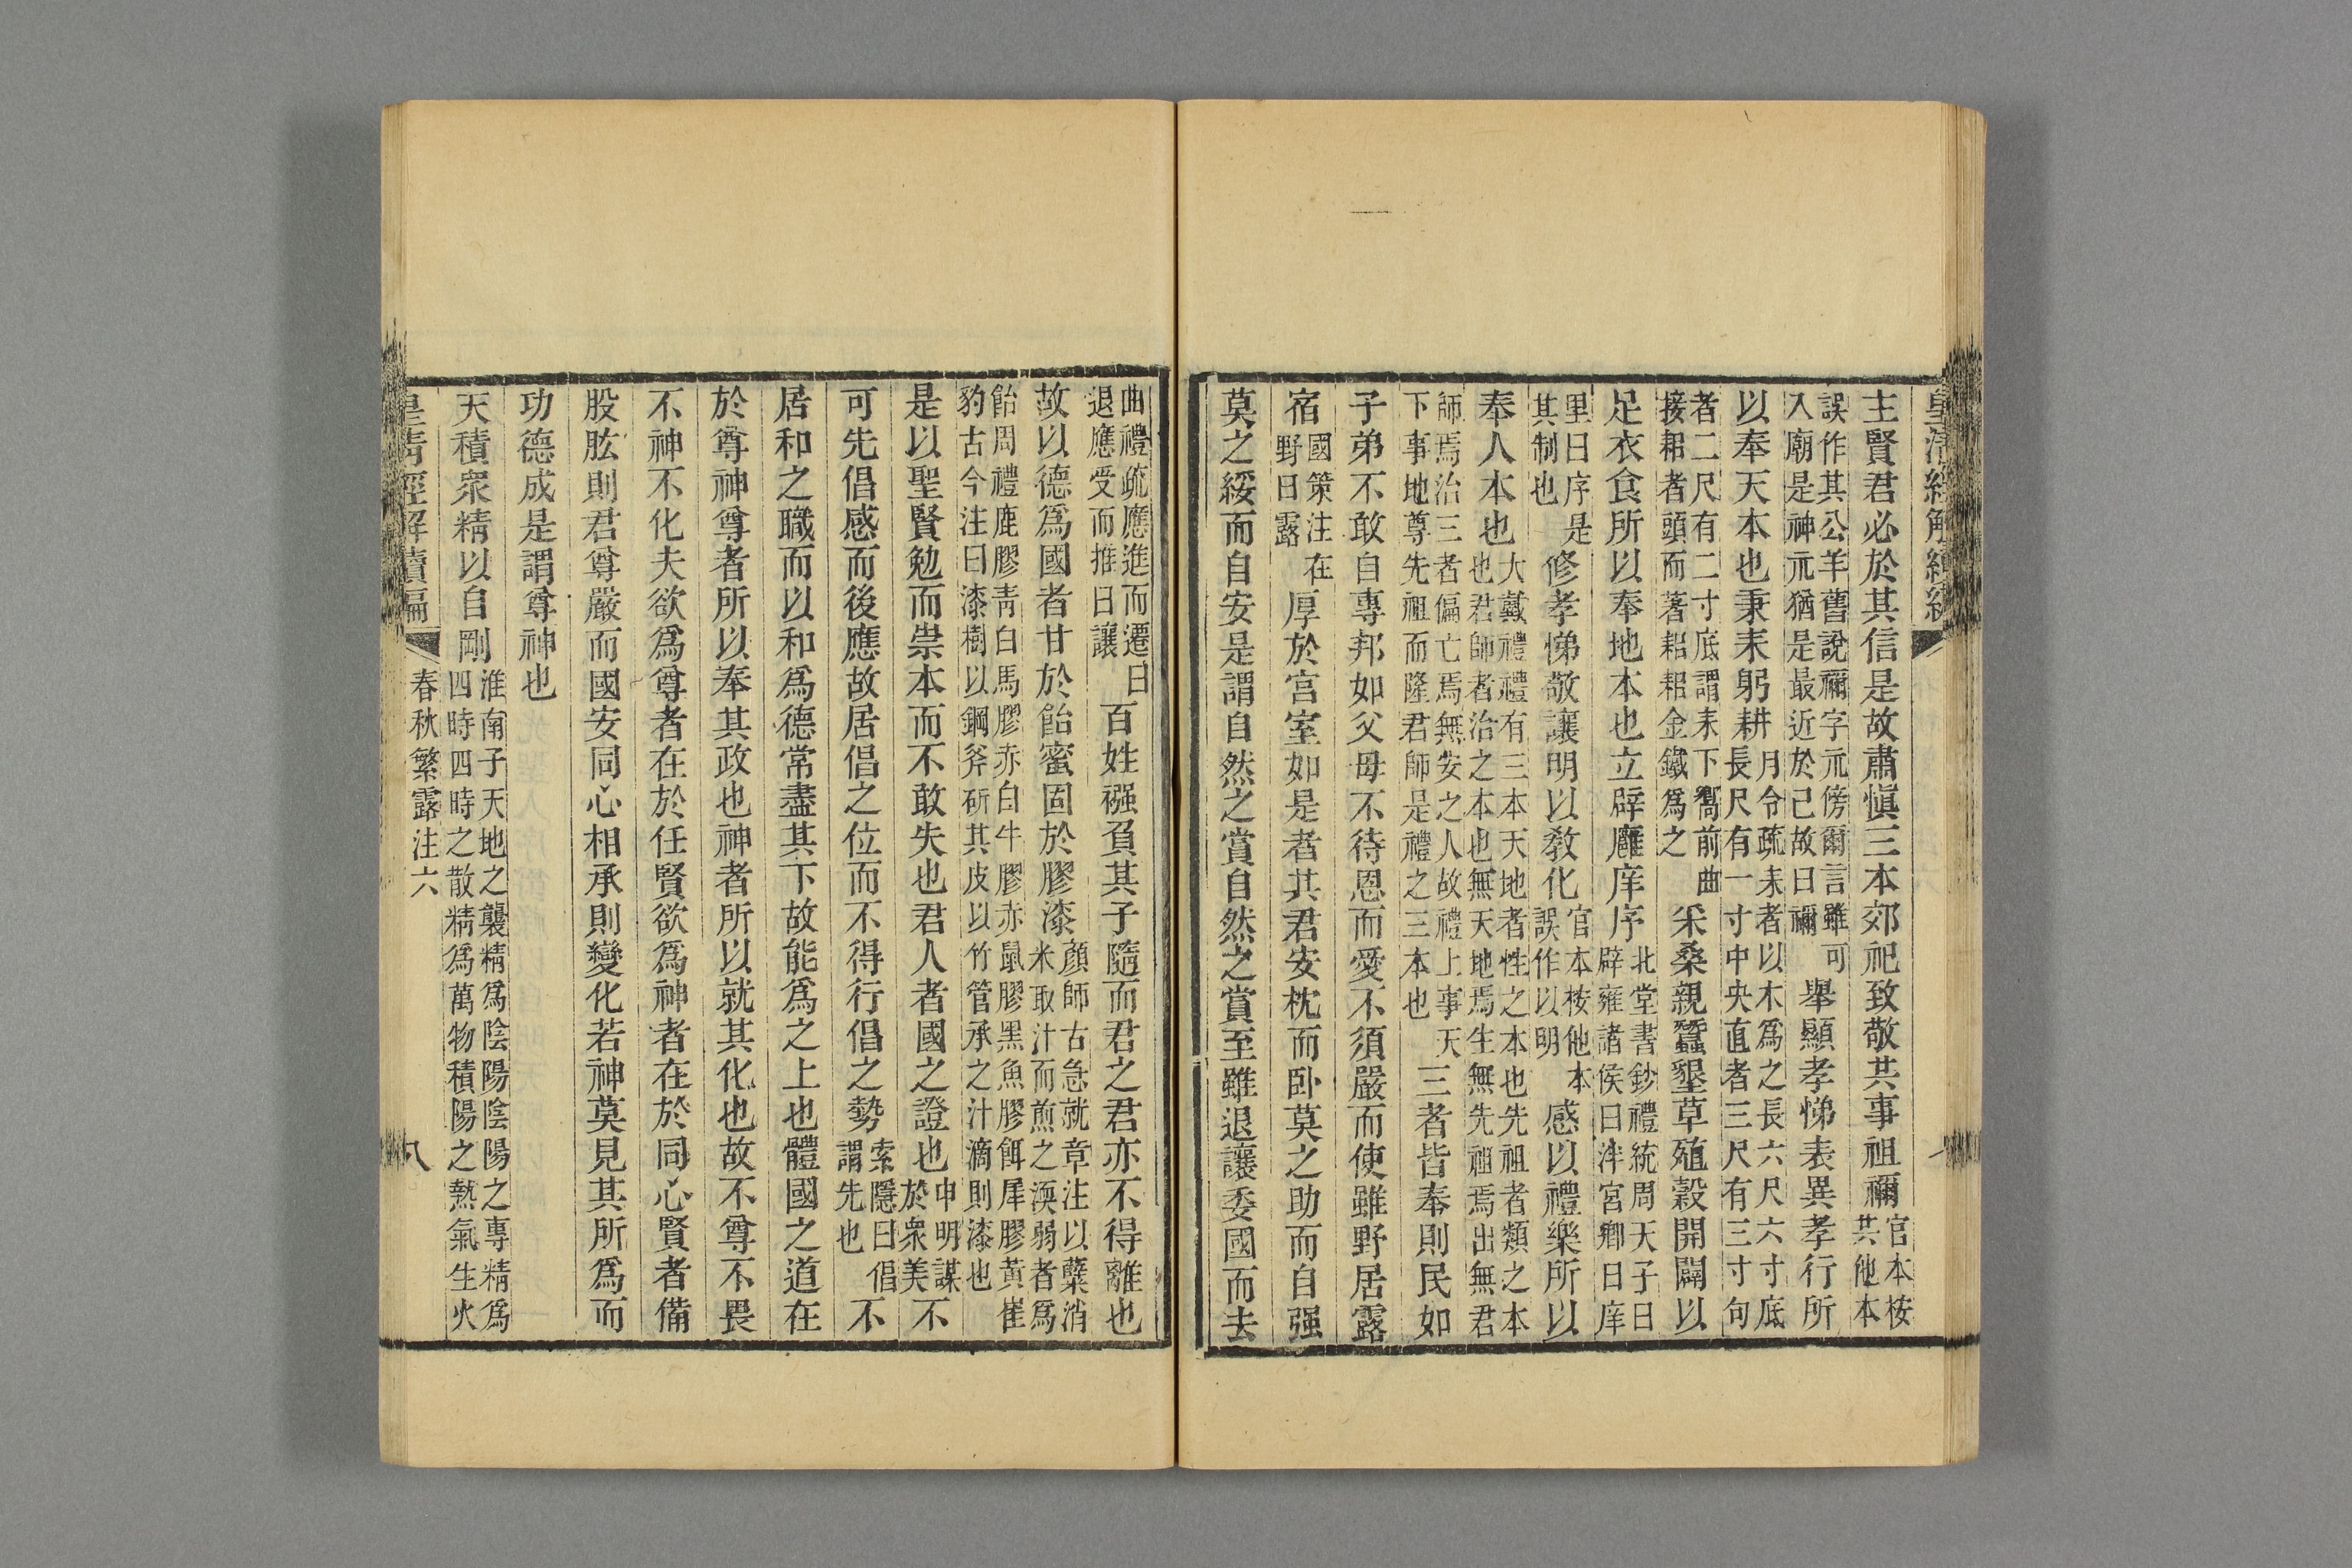 皇清經解續編
主賢君必於其信是故肅慎三本郊祀致敬共事祖禰官本桉共他本
誤作其公羊舊說禰字示傍爾言雖可入廟是神示猶是最近於己故曰禰舉顯孝悌表異孝行所
以奉天本也秉耒躬耕月令疏耒者以木爲之長六尺六寸底長尺有一寸中央直者三尺有三寸句
者二尺有二寸底謂耒下嚮前曲接耜者頭而著耜耜金鐵爲之采桑親蠶墾草殖穀開闢以
足衣食所以奉地本也立辟廱庠序北堂書鈔禮統周天子曰辟雍諸侯曰泮宮鄉曰庠
里曰序是其制也修孝悌敬讓明以教化官本桉他本誤作以明感以禮樂所以
奉人本也大戴禮禮有三本天地者性之本也先祖者類之本也君師者治之本也無天地焉生無先祖焉出無君
師焉治三者偏亡焉無安之人故禮上事天下事地尊先祖而隆君師是禮之三本也三者皆奉則民如
子弟不敢自專邦如父母不待恩而愛不須嚴而使雖野居露
宿國策注在野曰露厚於宮室如是者其君安枕而卧莫之助而自强
莫之綏而自安是謂自然之賞自然之賞至雖退讓委國而去
曲禮疏應進而遷曰退應受而推曰讓百姓襁負其子隨而君之君亦不得離也
故以德爲國者甘於飴蜜固於膠漆顏師古急就章注以糵消米取汁而煎之渜弱者爲
飴周禮鹿膠靑白馬膠赤白牛膠赤鼠膠黑魚膠餌犀膠黃崔豹古今注曰漆樹以鋼斧斫其皮以竹管承之汁滴則漆也
是以聖賢勉而崇本而不敢失也君人者國之證也申明謀於衆美不
可先倡感而後應故居倡之位而不得行倡之勢索隱曰倡謂先也不
居和之職而以和爲德常盡其下故能爲之上也體國之道在
於尊神尊者所以奉其政也神者所以就其化也故不尊不畏
不神不化夫欲爲尊者在於任賢欲爲神者在於同心賢者備
股肱則君尊嚴而國安同心相承則變化若神莫見其所爲而
功德成是謂尊神也
天積衆精以自剛淮南子天地之襲精爲陰陽陰陽之專精爲四時四時之散精爲萬物積陽之熱氣生火
皇清經解續編 春秋繁露注六 八